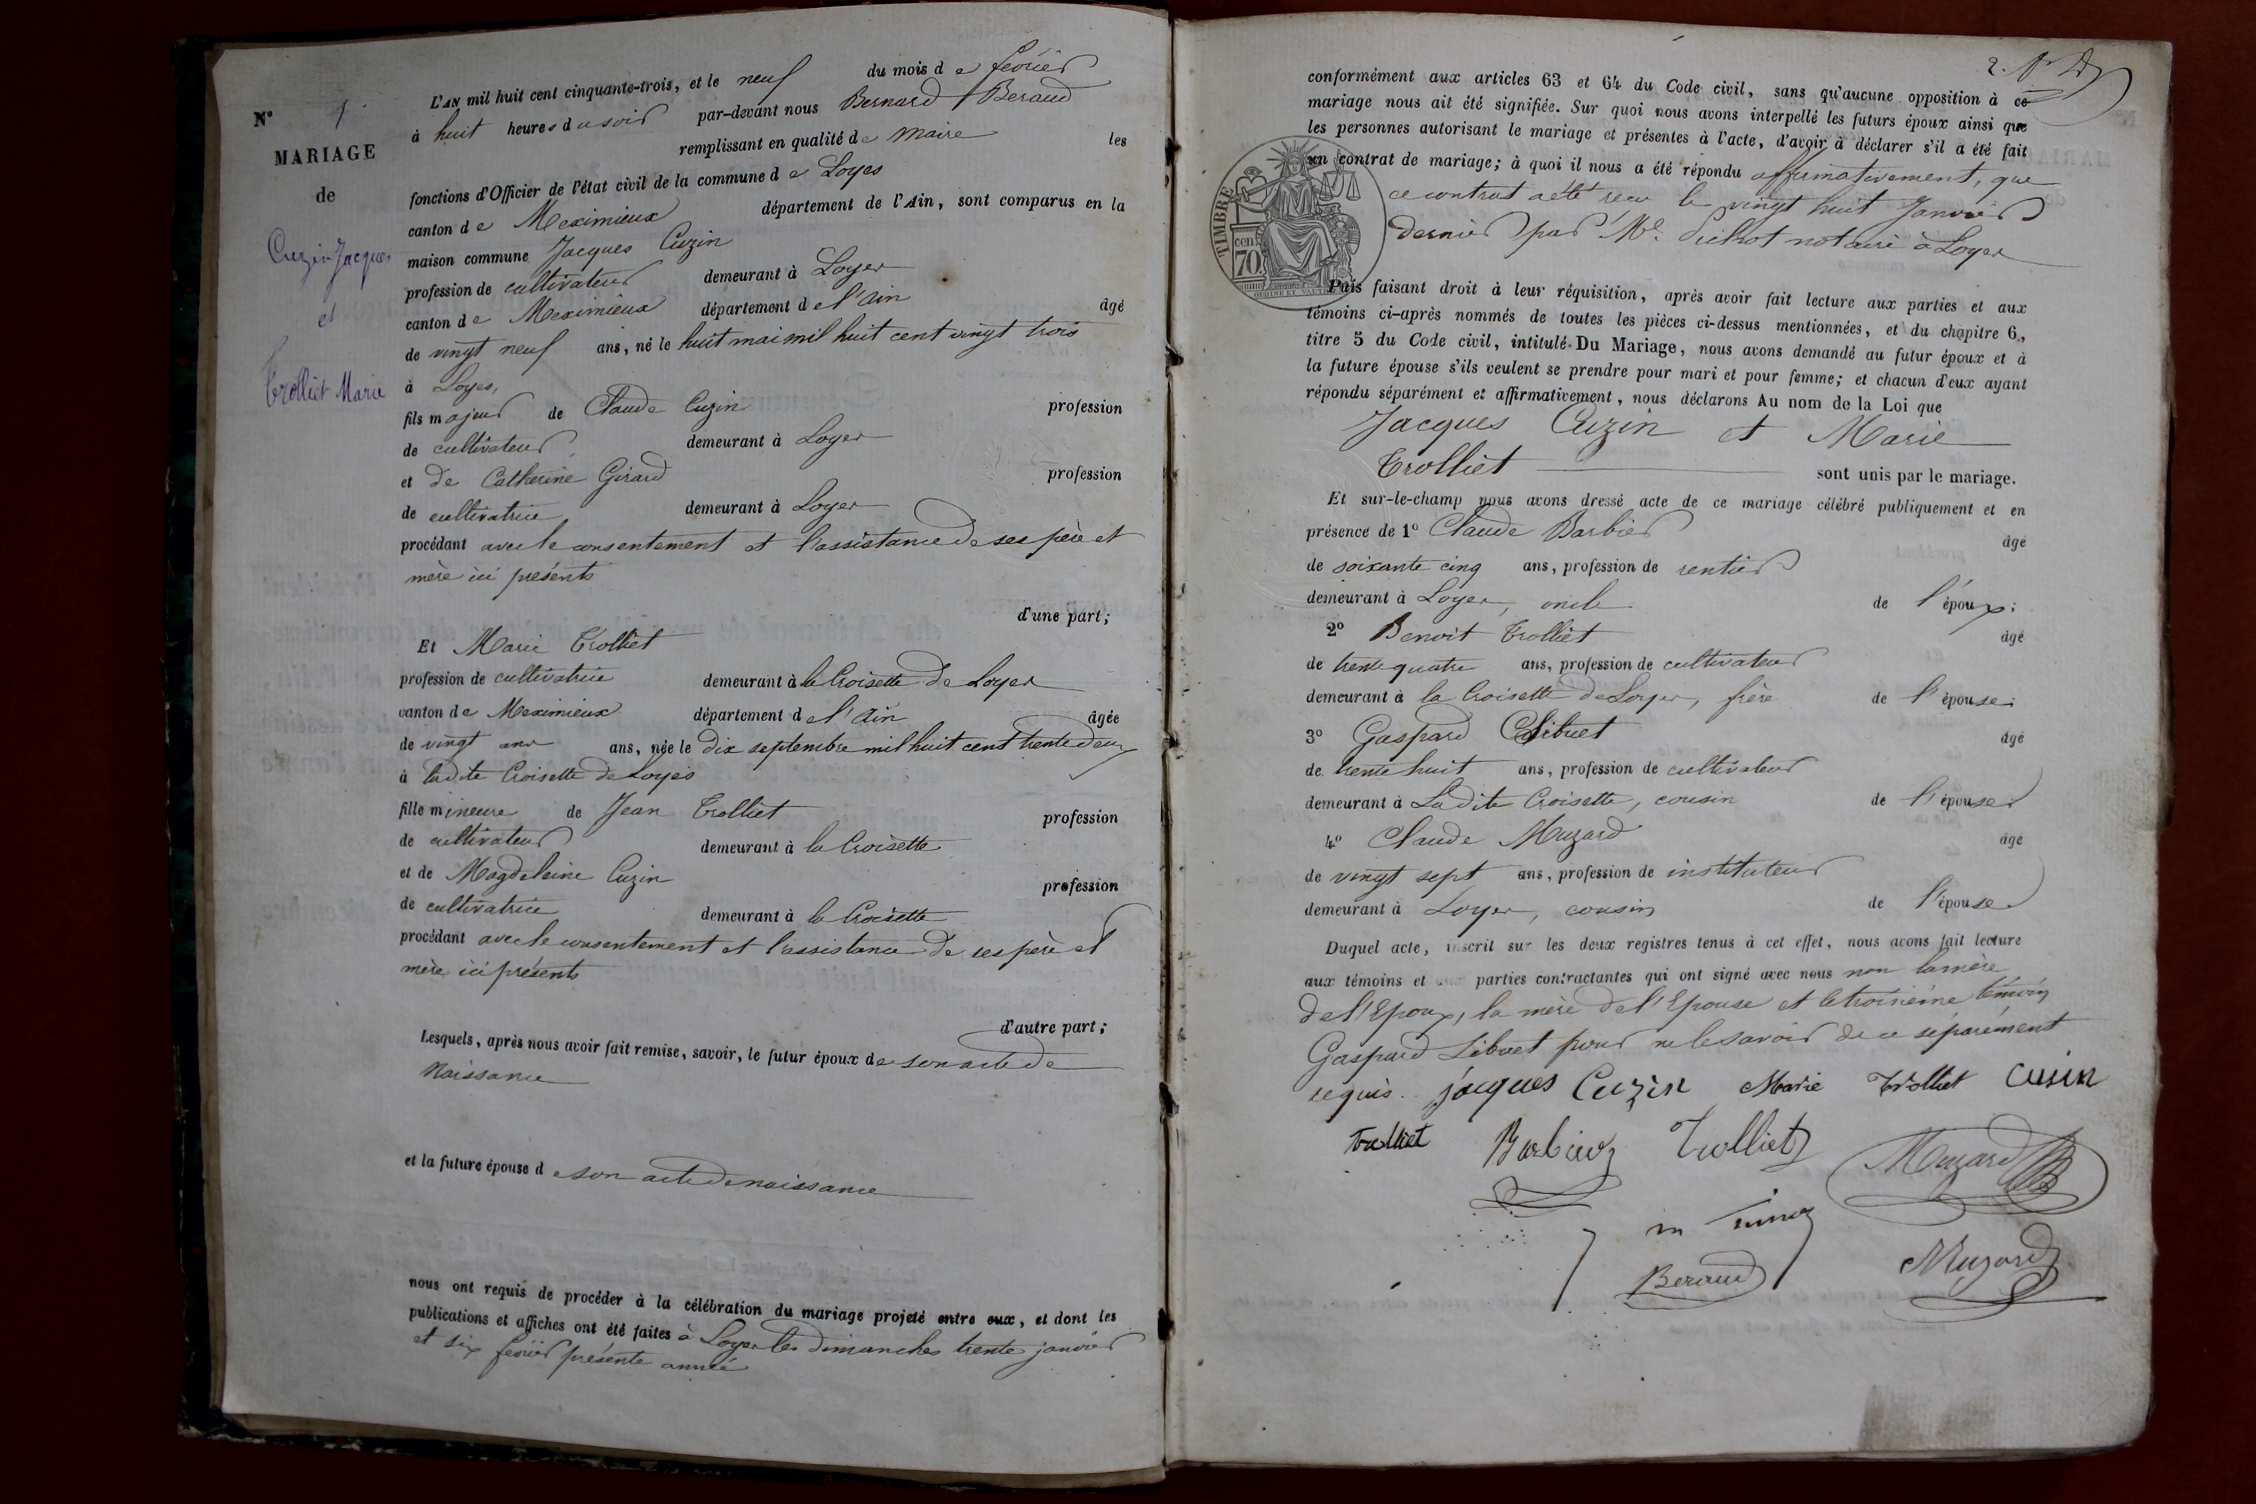 N° 1.
MARIAGE
de
Cuzin Jacques
et
Trolliet Marie
L'AN mil huit cent cinquante-trois, et le neuf du mois de février
à huit heures du soir par-devant nous Bernard Beraud
remplissant en qualité de Maire les
fonctions d'Officier de l'état civil de la commune de Loyes
canton de Meximieux département de l'Ain, sont comparus en la
maison commune Jacques Cuzin
profession de cultivateur demeurant à Loyes
canton de Meximieux département de l'Ain âgé
de vingt neuf ans, né le huit mai mil huit cent vingt trois
à Loyes,
fils majeur de Claude Cuzin profession
de cultivateur demeurant à Loyes
et de Catherine Girard profession
de cultivatrice demeurant à Loyes
procédant avec le consentement et l'assistance de ses père et
mère ici présents
d'une part;
Et Marie Trolliet
profession de cultivatrice demeurant à la Croisette de Loyes
canton de Meximieux département de l'Ain âgée
de vingt ans ans, née le dix septembre mil huit cent trente deux
à ladite Croisette de Loyes
fille mineure de Jean Trolliet profession
de cultivateur demeurant à la Croisette
et de Magdeleine Cuzin profession
de cultivatrice demeurant à la Croisette
procédant avec le consentement et l'assistance de ses père et
mère ici présents
d'autre part;
Lesquels, après nous avoir fait remise, savoir, le futur époux de son acte de
Naissance
et la future épouse de son acte de naissance
nous ont requis de procéder à la célébration du mariage projeté entre eux, et dont les
publications et affiches ont été faites à Loyes les dimanches trente janvier
et six février présente année
2.
conformément aux articles 63 et 64 du Code civil, sans qu'aucune opposition à ce
mariage nous ait été signifiée. Sur quoi nous avons interpellé les futurs époux ainsi que
les personnes autorisant le mariage et présentes à l'acte, d'avoir à déclarer s'il a été fait
un contrat de mariage; à quoi il nous a été répondu affirmativement, que
ce contrat a été reçu le vingt huit Janvier
dernier par Me. notaire à Loyes
TIMBRE
70 cen.
Puis faisant droit à leur réquisition, après avoir fait lecture aux parties et aux
témoins ci-après nommés de toutes les pièces ci-dessus mentionnées, et du chapitre 6,
titre 5 du Code civil, intitulé Du Mariage, nous avons demandé au futur époux et à
la future épouse s'ils veulent se prendre pour mari et pour femme; et chacun d'eux ayant
répondu séparément et affirmativement, nous déclarons Au nom de la Loi que
Jacques Cuzin et Marie
Trolliet sont unis par le mariage.
Et sur-le-champ nous avons dressé acte de ce mariage célébré publiquement et en
présence de 1° Claude Barbier âgé
de soixante cinq ans, profession de rentier
demeurant à Loyes, oncle de l'époux;
2° Benoit Trolliet âgé
de trente quatre ans, profession de cultivateur
demeurant à la Croisette de Loyes, frère de l'épouse;
3° Gaspard Libuet âgé
de trente huit ans, profession de cultivateur
demeurant à Ladite Croisette, cousin de l'épouse
4° Claude Muzard âgé
de vingt sept ans, profession de instituteur
demeurant à Loyes, cousin de l'épouse
Duquel acte, inscrit sur les deux registres tenus à cet effet, nous avons fait lecture
aux témoins et aux parties contractantes qui ont signé avec nous non la mère
de l'Epoux, la mère de l'Epouse et le troisième témoin
Gaspard Libuet pour ne le savoir de ce séparément
requis. jacques Cuzin Marie Trolliet Cusin
Trolliet Barbier Trolliet Muzard
Beraud Muzard